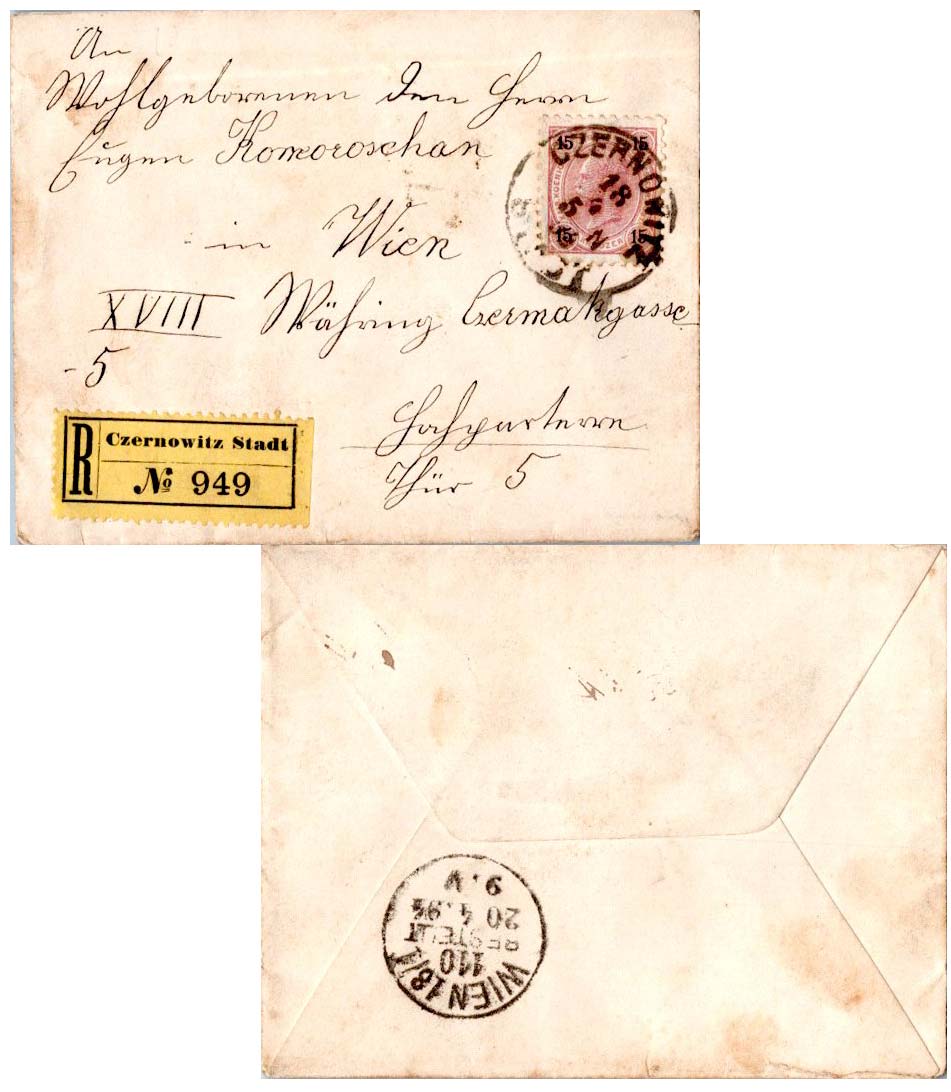 An
Wohlgeborenen den Herrn
Eugen Komoroschan
in Wien
XVIII Währing Czermakgasse
5
Hochparterre
Thür 5
15 15
15 15
CZERNOWITZ
18
STADT
R Czernowitz Stadt
№ 949
WIEN 18/1
110
BESTELLT
20 4.94
9.V